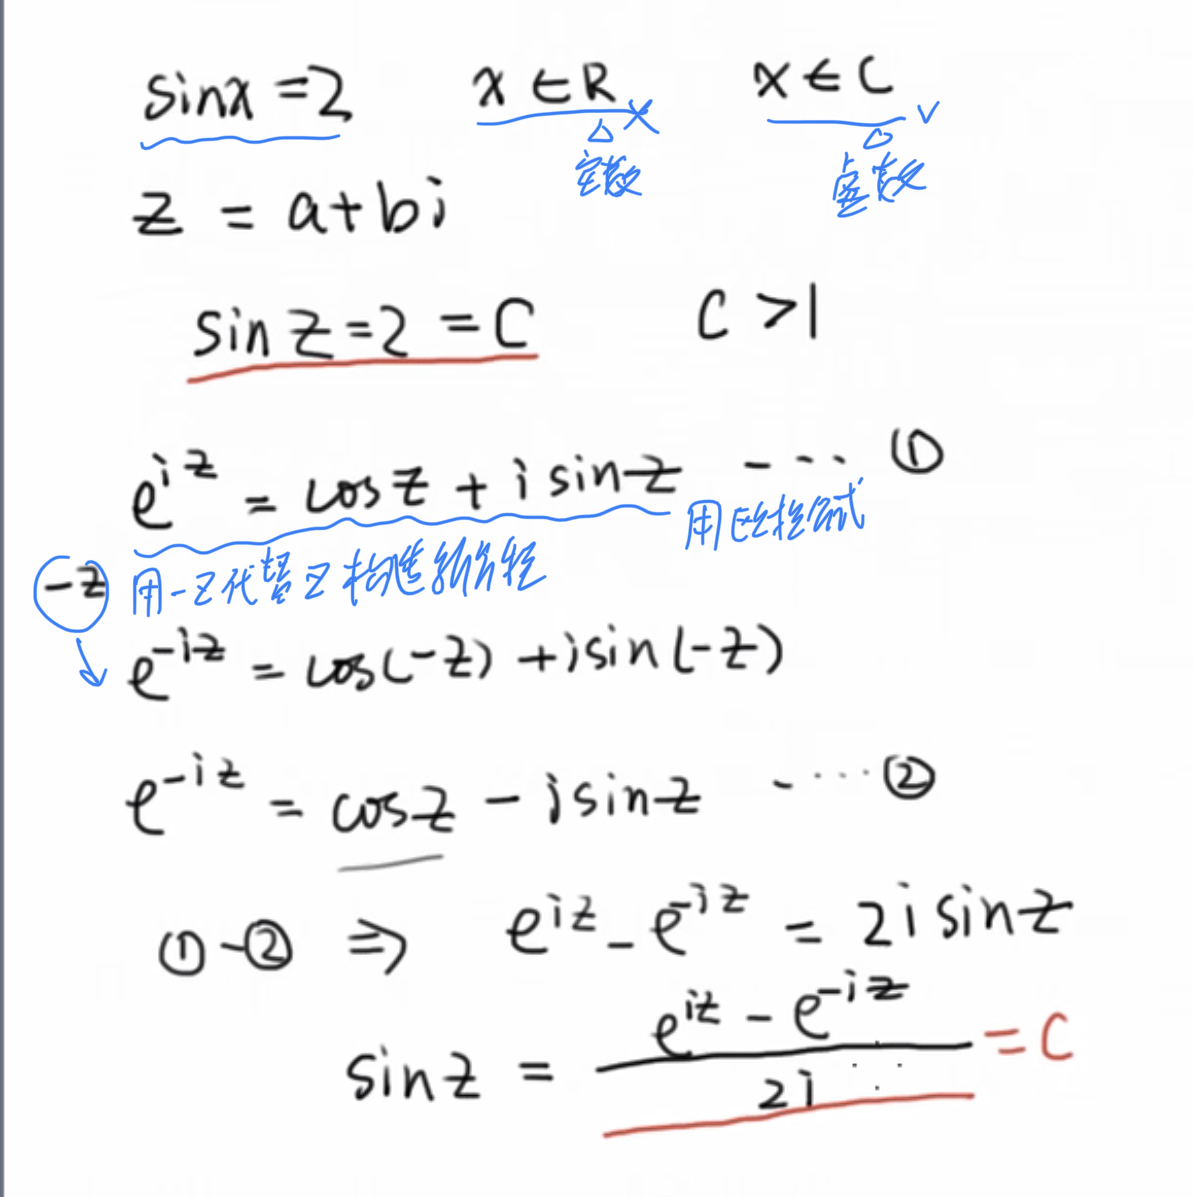 sinx = 2 x ∈ R × x ∈ C √
△ △
实数 虚数
z = a+bi
sin z = 2 = C C > 1
e^{iz} = cos z + i sin z -··· ①
用欧拉公式
-z 用-z代替z构造新方程
e^{-iz} = cos(-z) + i sin(-z)
e^{-iz} = cos z - i sin z -····②
①-② ⇒ e^{iz} - e^{-iz} = 2i sin z
sin z = \frac{e^{iz} - e^{-iz}}{2i} = C